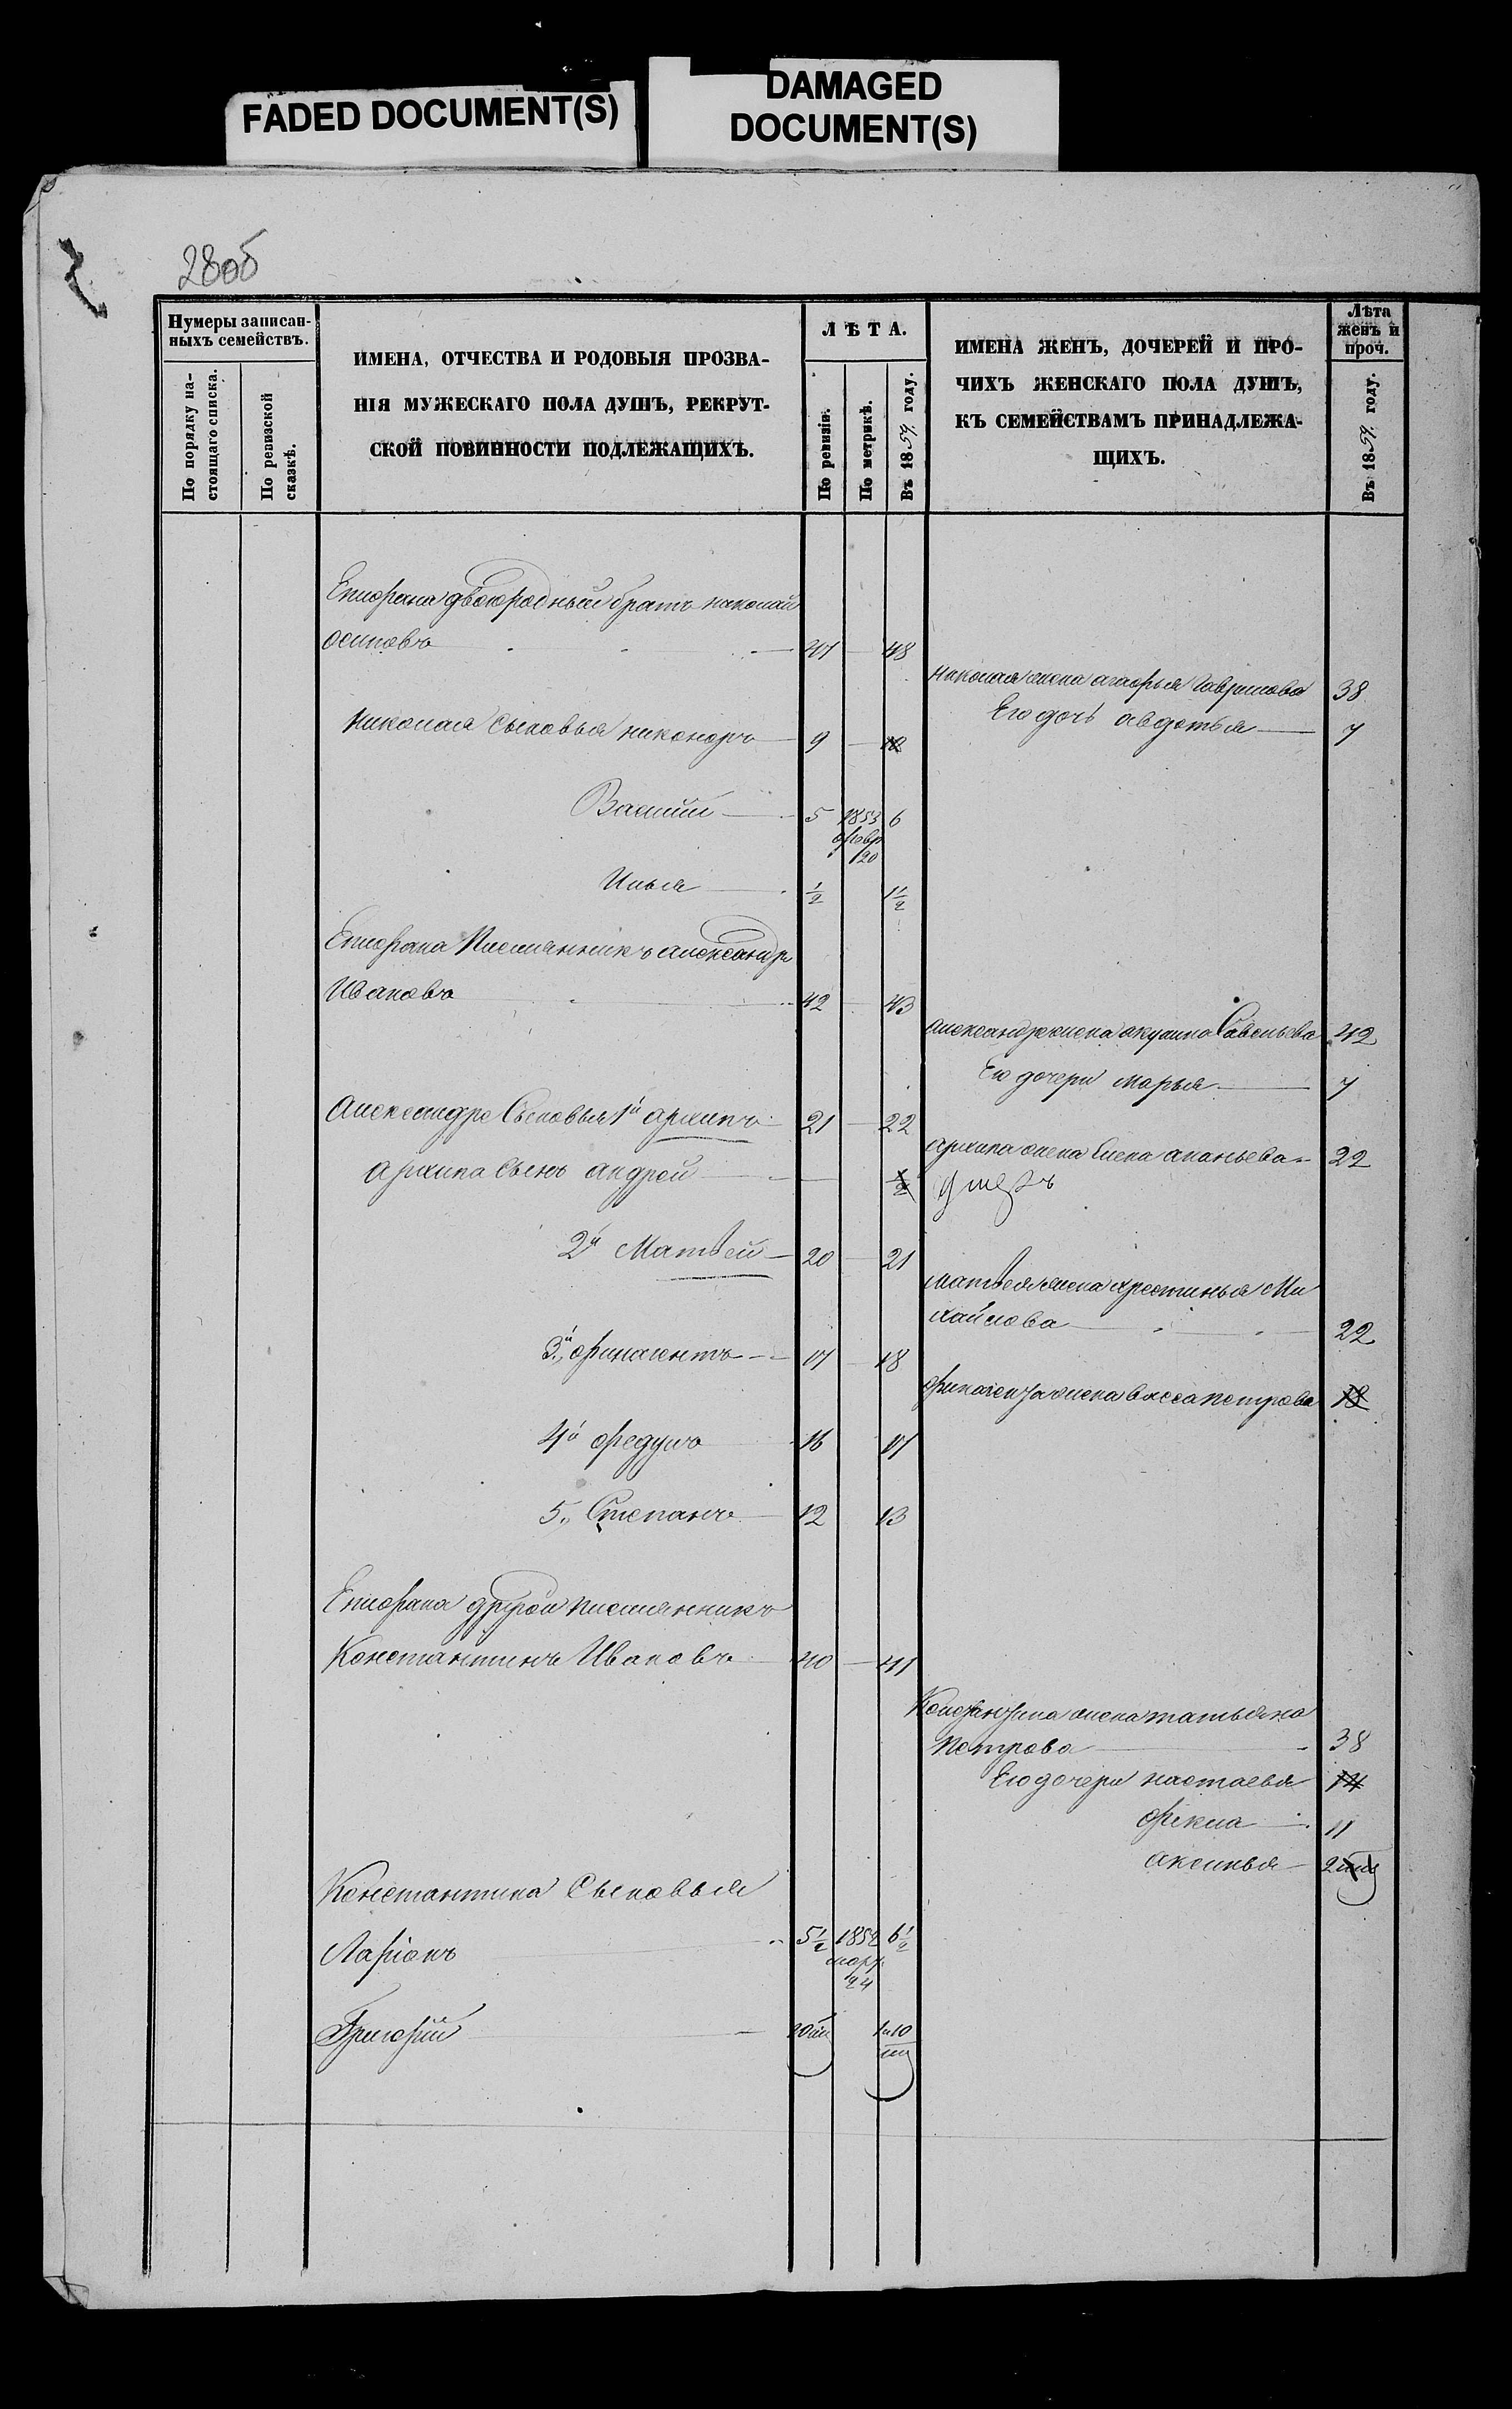 FADED DOCUMENT(S)
DAMAGED
DOCUMENT(S)
28об
Нумеры записан-
ныхъ семействъ.
По порядку на-
стоящаго списка.
По ревизской
сказкѣ.
ИМЕНА, ОТЧЕСТВА И РОДОВЫЯ ПРОЗВА-
НІЯ МУЖЕСКАГО ПОЛА ДУШЪ, РЕКРУТ-
СКОЙ ПОВИННОСТИ ПОДЛЕЖАЩИХЪ.
ЛѢТА.
По ревизіи.
По метрикѣ.
Въ 1859 году.
ИМЕНА ЖЕНЪ, ДОЧЕРЕЙ И ПРО-
ЧИХЪ ЖЕНСКАГО ПОЛА ДУШЪ,
КЪ СЕМЕЙСТВАМЪ ПРИНАДЛЕЖА-
ЩИХЪ.
Лѣта
женъ и
проч.
Въ 1859 году.
двоюродный братъ николай
осиповъ 47 48
николая жена агафья Гаврилова 38
Его дочь авдотья 7
николая Сыновья никоноръ 9 10
Василий 5 1853 6
февр
20
Илья ½ 1½
Племянникъ александръ
Ивановъ 42 43
александра жена акулина Савельева 42
Его дочери марья 7
Александра Сыновья 1й архипъ 21 22
архипа жена Елена ананьева 22
архипа Сынъ андрей ½ умеръ
2й Матвей 20 21
матвея жена хрестинья Ми
хайлова 22
3й финагентъ 17 18
жена васса петрова 18
4й федулъ 16 17
5. Степанъ 12 13
другой племянникъ
Константинъ Ивановъ 40 41
Константина жена татьяна
Петрова 38
Его дочери настасья 14
фекла 11
аксинья 2
Константина Сыновья
Ларіонъ 5½ 1852 6½
марта
24
Григорій 10м 1 и 10
м